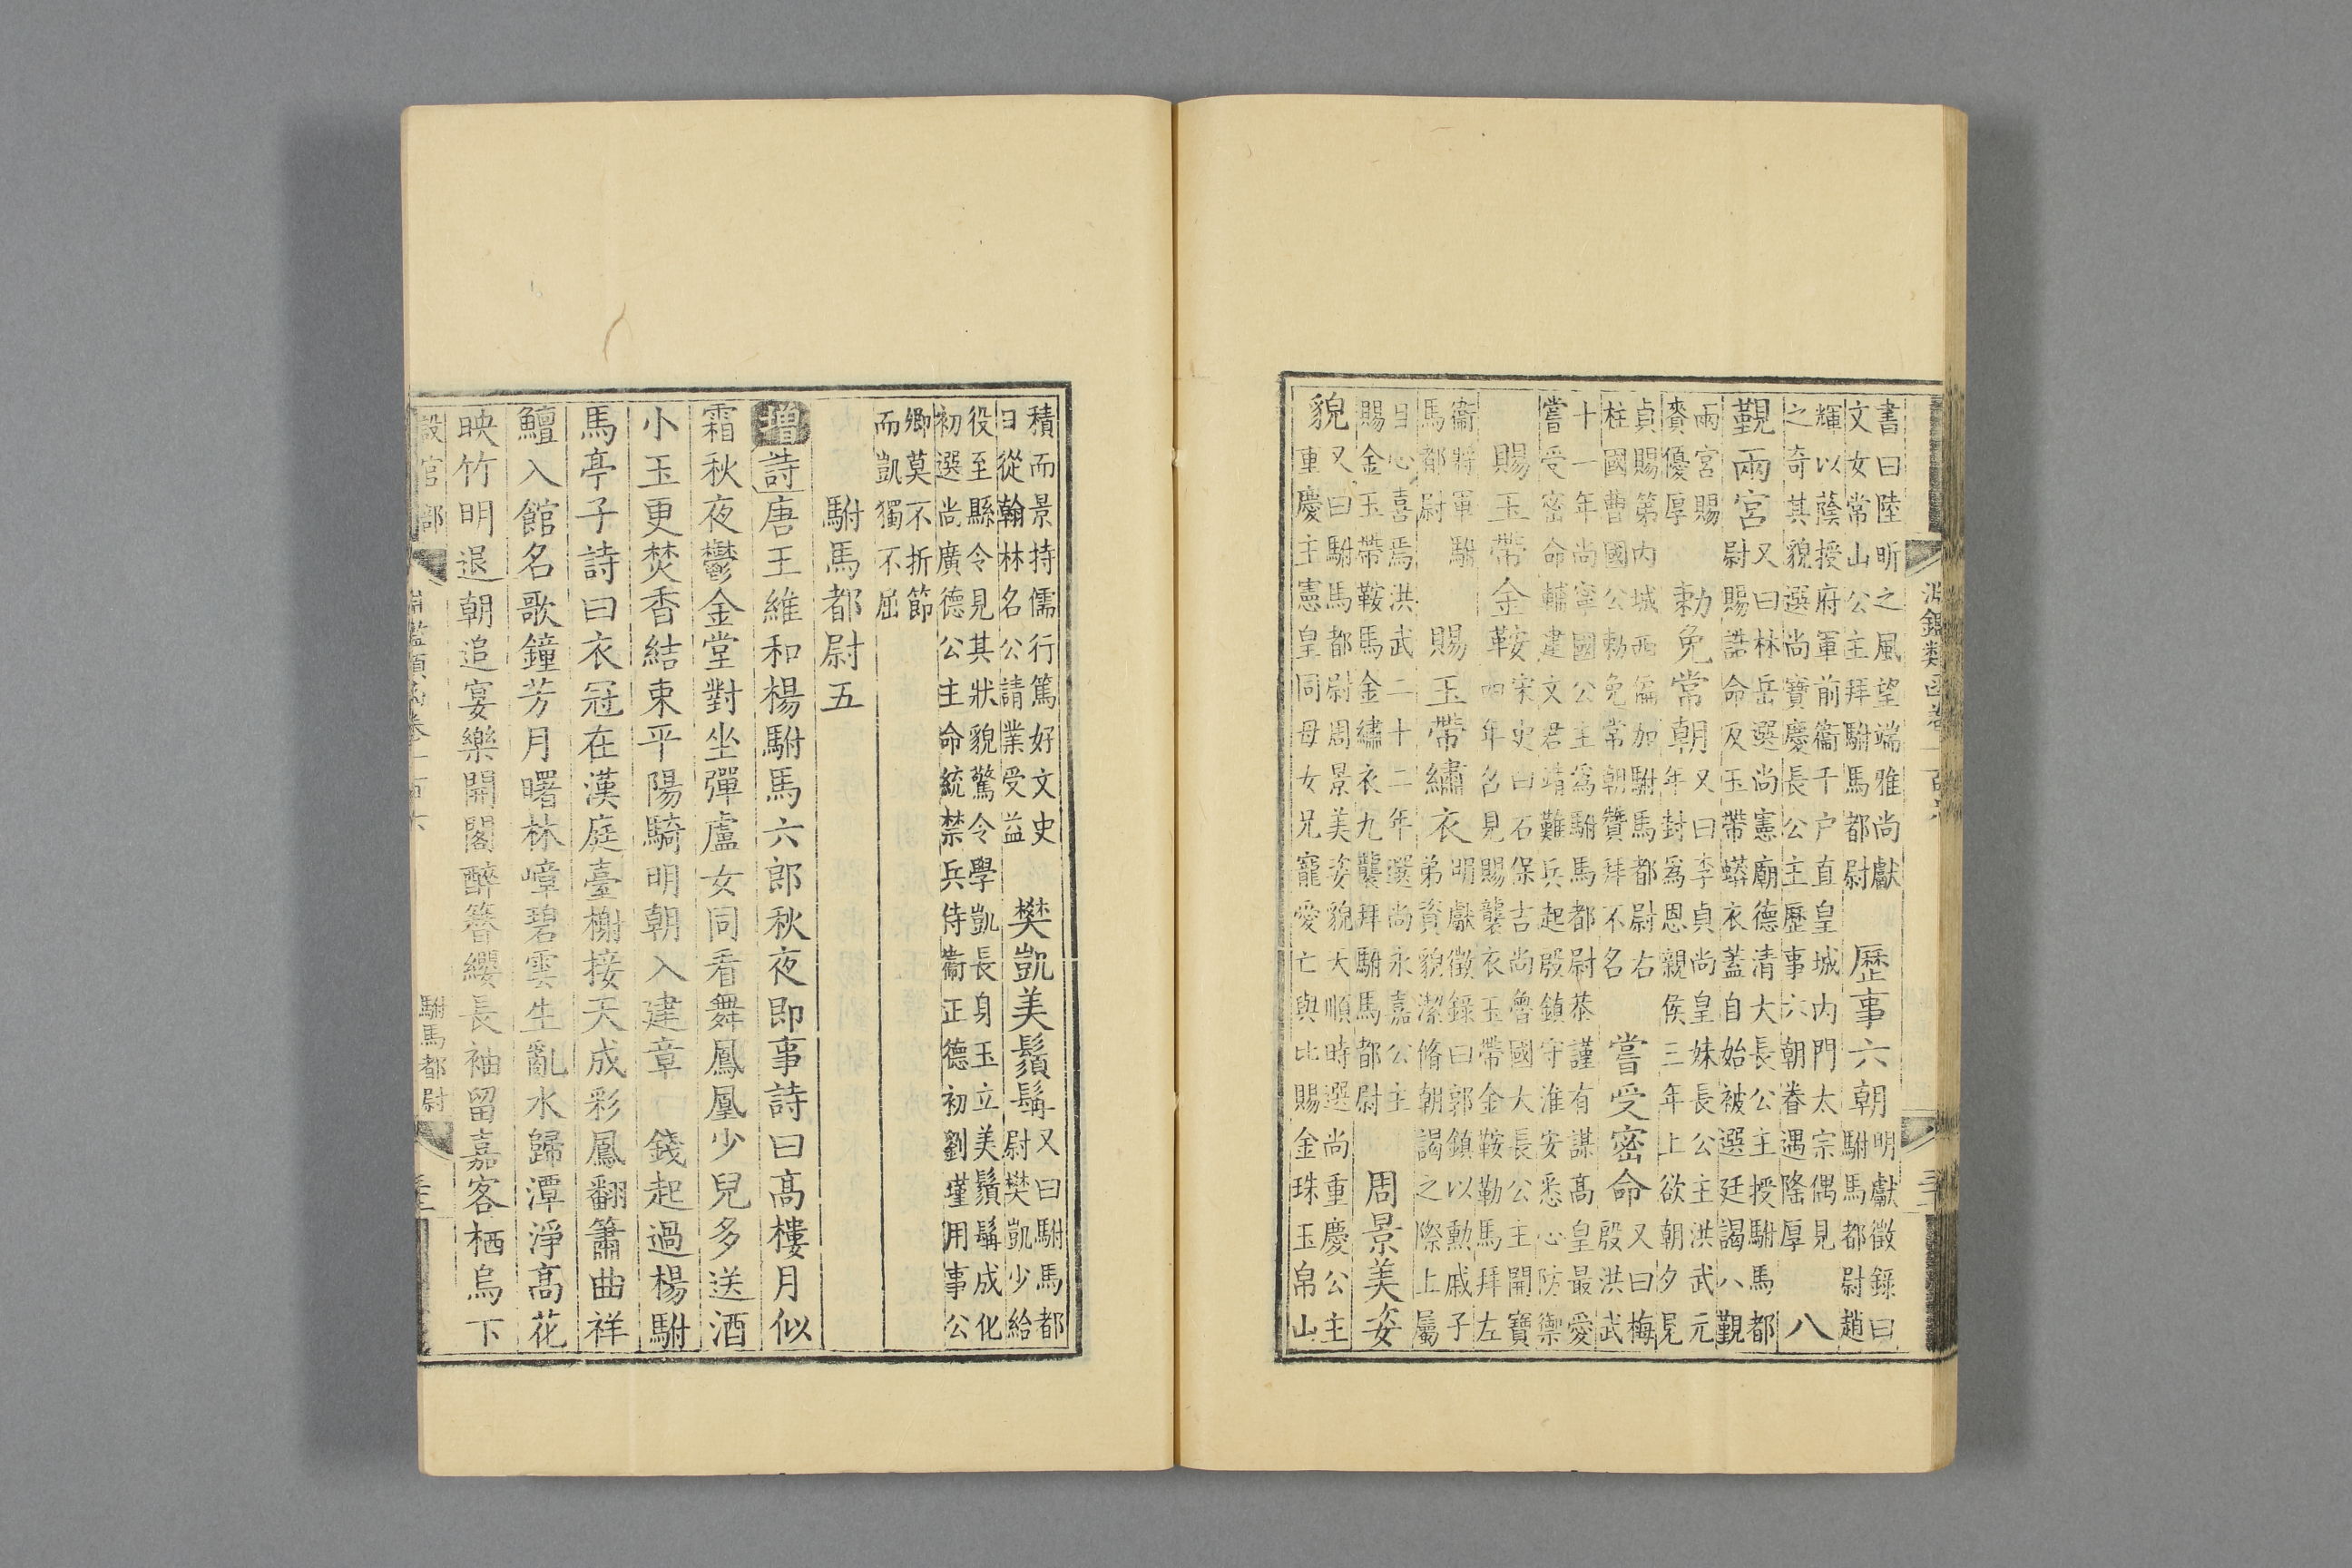 淵鑑類函卷一百六
書曰陸昕之風望端雅尚獻
文女常山公主拜駙馬都尉
歷事六朝
明獻徵錄曰
駙馬都尉趙
輝以蔭授府軍前衞千户直皇城内門太宗偶見
之奇其貌選尚寶慶長公主歷事六朝眷遇隆厚
八
覲兩宮
又曰林岳選尚憲廟德清大長公主授駙馬都
尉賜誥命及玉帶蟒衣蓋自始被選廷謁八覲
兩宮賜
賚優厚
勅免常朝
又曰李貞尚皇妹長公主洪武元
年封爲恩親侯三年上欲朝夕見
貞賜第内城西偏加駙馬都尉右
柱國曹國公勅免常朝贊拜不名
嘗受密命
又曰梅
殷洪武
十一年尚寧國公主爲駙馬都尉恭謹有謀高皇最愛
嘗受密命輔建文君靖難兵起殷鎮守淮安悉心防禦
賜玉帶金鞍
宋史曰石保吉尚魯國大長公主開寶
四年召見賜襲衣玉帶金鞍勒馬拜左
衞將軍駙
馬都尉
賜玉帶繡衣
明獻徵錄曰郭鎮以勳戚子
弟資貌潔脩朝謁之際上屬
日心喜焉洪武二十二年選尚永嘉公主
賜金玉帶鞍馬金繡衣九襲拜駙馬都尉
周景美姿
貌
又曰駙馬都尉周景美姿貌天順時選尚重慶公主
重慶主憲皇同母女兄寵愛亡與比賜金珠玉帛山
積而景持儒行篤好文史
日從翰林名公請業受益
樊凱美鬚髯
又曰駙馬都
尉樊凱少給
役至縣令見其狀貌驚令學凱長身玉立美鬚髯成化
初選尚廣德公主命統禁兵侍衞正德初劉瑾用事公
卿莫不折節
而凱獨不屈
駙馬都尉五
增詩唐王維和楊駙馬六郎秋夜即事詩曰高樓月似
霜秋夜鬱金堂對坐彈盧女同看舞鳳凰少兒多送酒
小玉更焚香結束平陽騎明朝入建章 錢起過楊駙
馬亭子詩曰衣冠在漢庭臺榭接天成彩鳳翻簫曲祥
鱣入館名歌鐘芳月曙林嶂碧雲生亂水歸潭淨高花
映竹明退朝追宴樂開閣醉簪纓長袖留嘉客栖烏下
設官部
淵鑑類函卷一百六
駙馬都尉